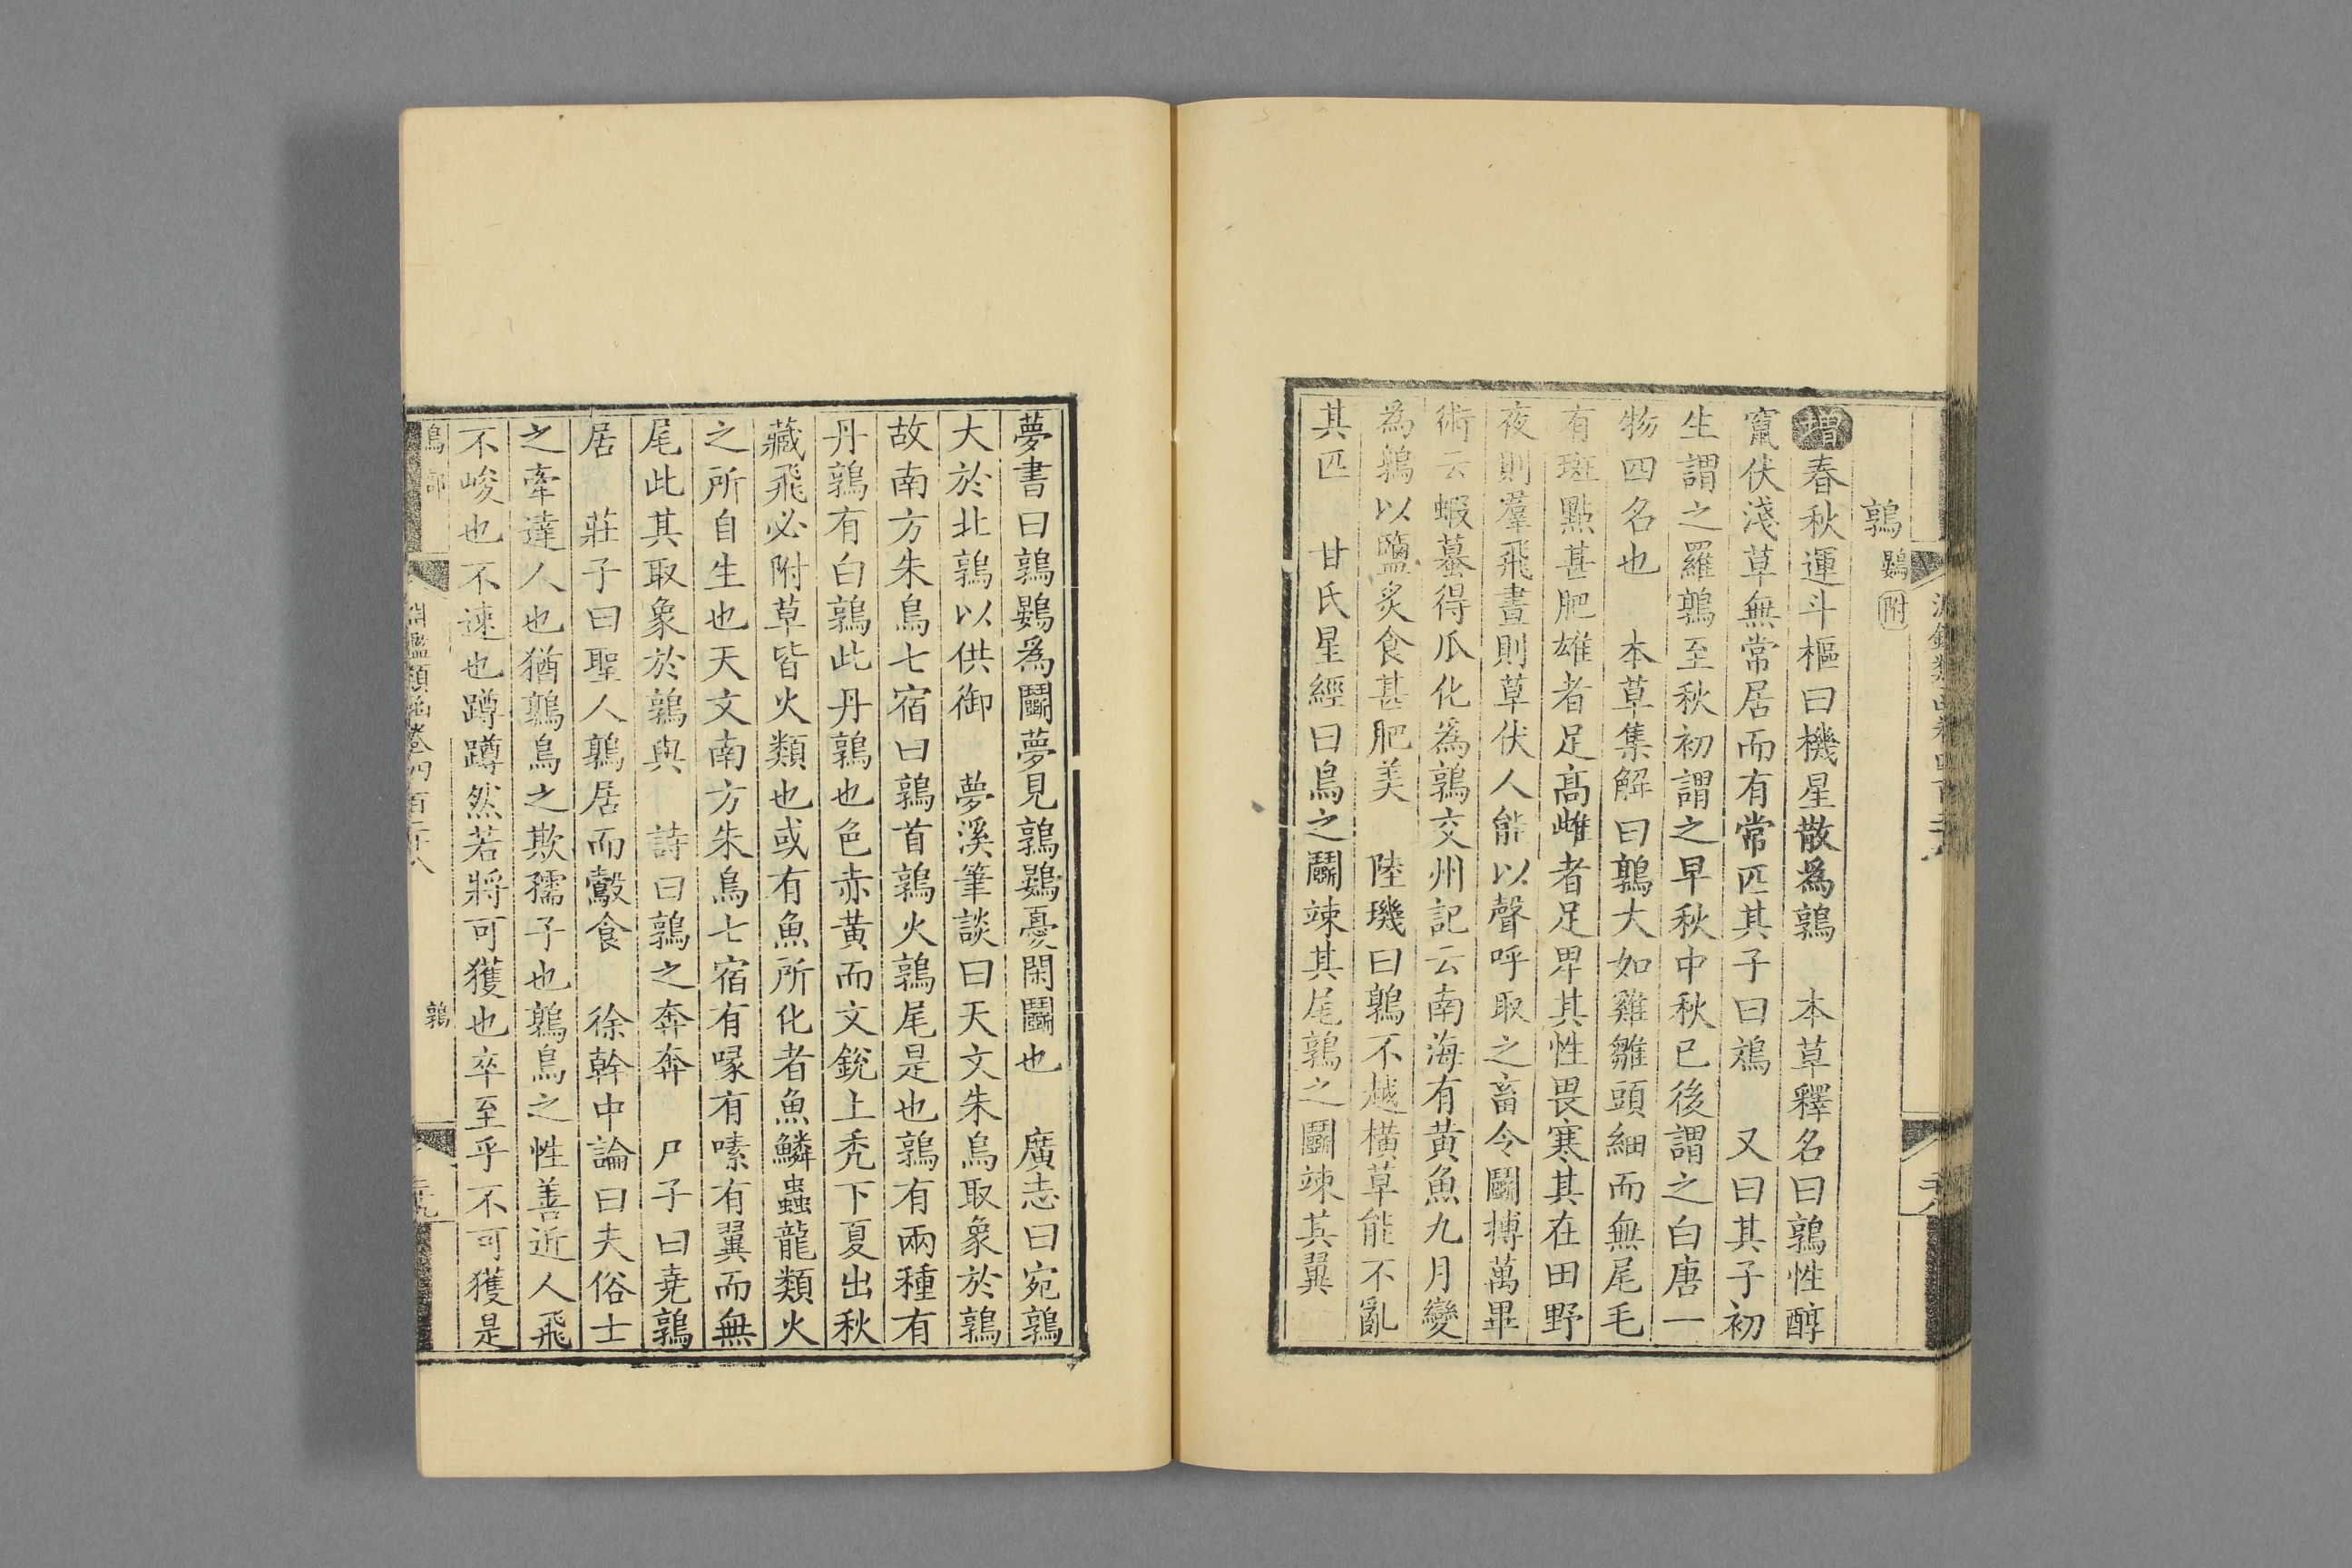 鶉 鷃附
增春秋運斗樞曰機星散爲鶉 本草釋名曰鶉性醇
竄伏淺草無常居而有常匹其子曰鳼 又曰其子初
生謂之羅鶉至秋初謂之早秋中秋已後謂之白唐一
物四名也 本草集解曰鶉大如雞雛頭細而無尾毛
有斑點甚肥雄者足高雌者足卑其性畏寒其在田野
夜則羣飛晝則草伏人能以聲呼取之畜令鬭搏萬畢
術云蝦蟇得瓜化爲鶉交州記云南海有黄魚九月變
爲鶉以鹽炙食甚肥美 陸璣曰鶉不越橫草能不亂
其匹 甘氏星經曰鳥之鬭竦其尾鶉之鬭竦其翼
夢書曰鶉鷃爲鬭夢見鶉鷃憂閑鬭也 廣志曰宛鶉
大於北鶉以供御 夢溪筆談曰天文朱鳥取象於鶉
故南方朱鳥七宿曰鶉首鶉火鶉尾是也鶉有兩種有
丹鶉有白鶉此丹鶉也色赤黃而文銳上禿下夏出秋
藏飛必附草皆火類也或有魚所化者魚鱗蟲龍類火
之所自生也天文南方朱鳥七宿有喙有嗉有翼而無
尾此其取象於鶉與 詩曰鶉之奔奔 尸子曰堯鶉
居 莊子曰聖人鶉居而鷇食 徐幹中論曰夫俗士
之牽達人也猶鶉鳥之欺孺子也鶉鳥之性善近人飛
不峻也不速也蹲蹲然若將可獲也卒至乎不可獲是
鳥部 淵鑑類函卷四百廿八 鶉